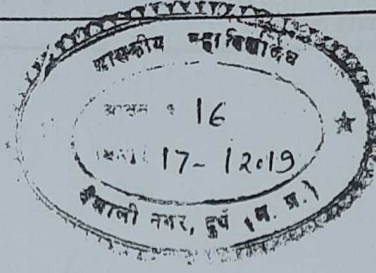 शासकीय महाविद्यालय
16
17-12019
वैशाली नगर, दुर्ग (छ. ग.)